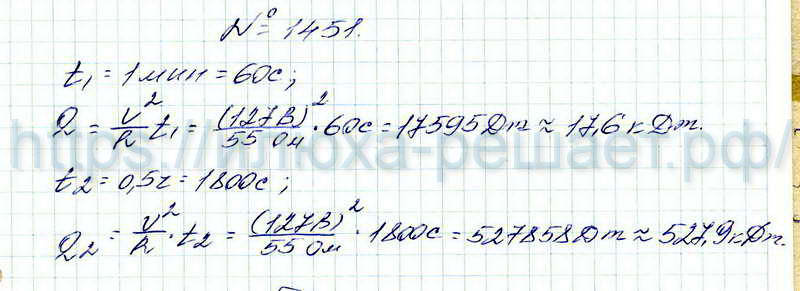 № 1451.
t₁ = 1 мин = 60с;
Q = U²/R t₁ = (127В)²/55 Ом · 60с = 17595Дж ≈ 17,6 кДж.
https://ктоха-решает.рф/
t₂ = 0,5ч = 1800с;
Q₂ = U²/R · t₂ = (127В)²/55 Ом · 1800с = 527858Дж ≈ 527,9кДж.